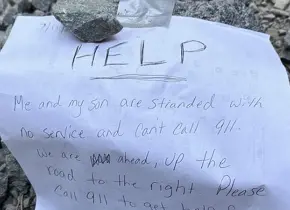 HELP
Me and my son are stranded with
no service and can't call 911.
We are ahead, up the
road to the right Please
call 911 to get help